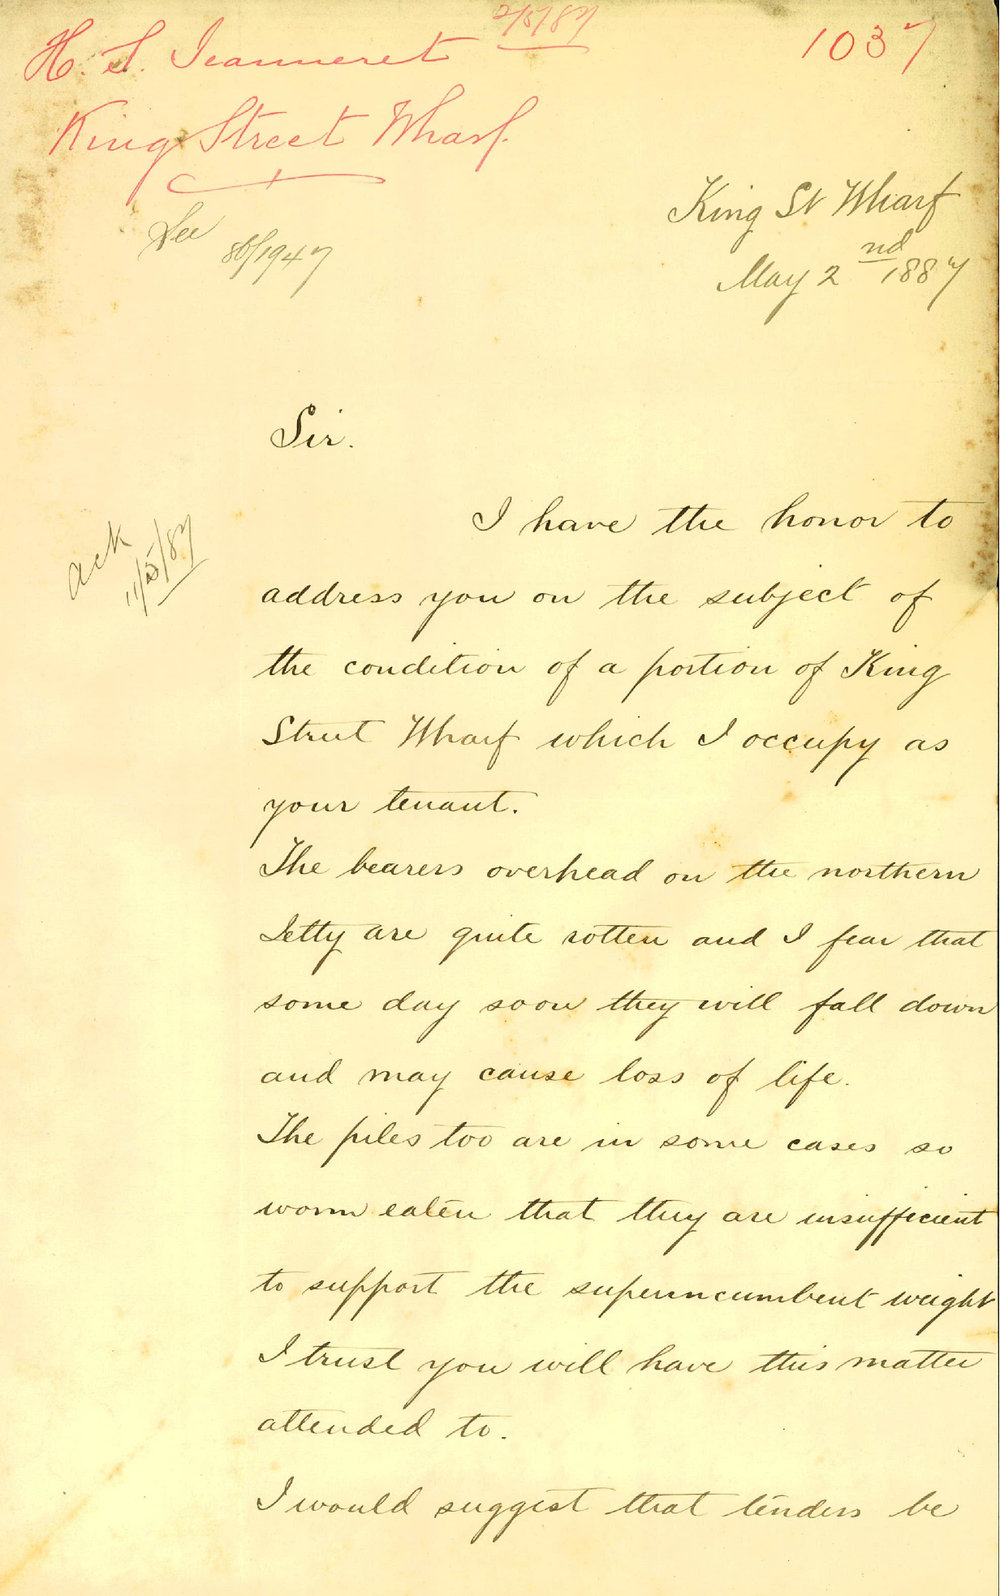 H. S. Jeanneret 2/5/87
1037
King Street Wharf.
King St Wharf
May 2nd 1887
See 86/1947
Sir.
I have the honor to
Ack 11/5/87
address you on the subject of
the condition of a portion of King
Street Wharf which I occupy as
your tenant.
The bearers overhead on the northern
Jetty are quite rotten and I fear that
some day soon they will fall down
and may cause loss of life.
The piles too are in some cases so
worm eaten that they are insufficient
to support the superincumbent weight
I trust you will have this matter
attended to.
I would suggest that tenders be